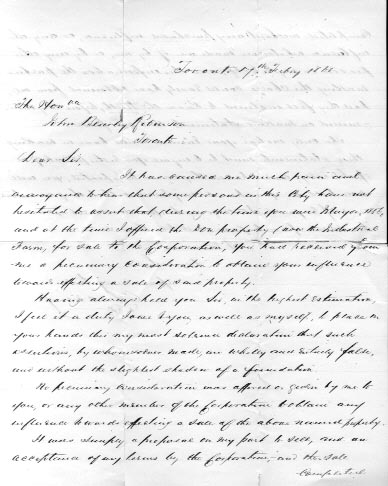 Toronto 17th Feby 18
The Honble
John Beverley Robinson
Toronto
Dear Sir,
It has caused me much pain and
annoyance to hear that some persons in this City have not
hesitated to assert that during the time you were Mayor, 1856,
and at the time I offered the property (now the Industrial
Farm, for sale to the Corporation, you had received from
me a pecuniary consideration to obtain your influence
towards effecting a sale of said property.
Having always held you Sir, in the highest estimation,
I feel it a duty I owe to you, as well as myself, to place in
your hands this my most solemn declaration that such
assertions, by whomsoever made, are wholly and entirely false,
and without the slightest shadow of a foundation.
No pecuniary consideration was offered or given by me to
you, or any other member of the Corporation to obtain any
influence towards effecting a sale of the above named property.
It was simply a proposal on my part to sell, and an
acceptance of my terms by the Corporation, and the sale
completed